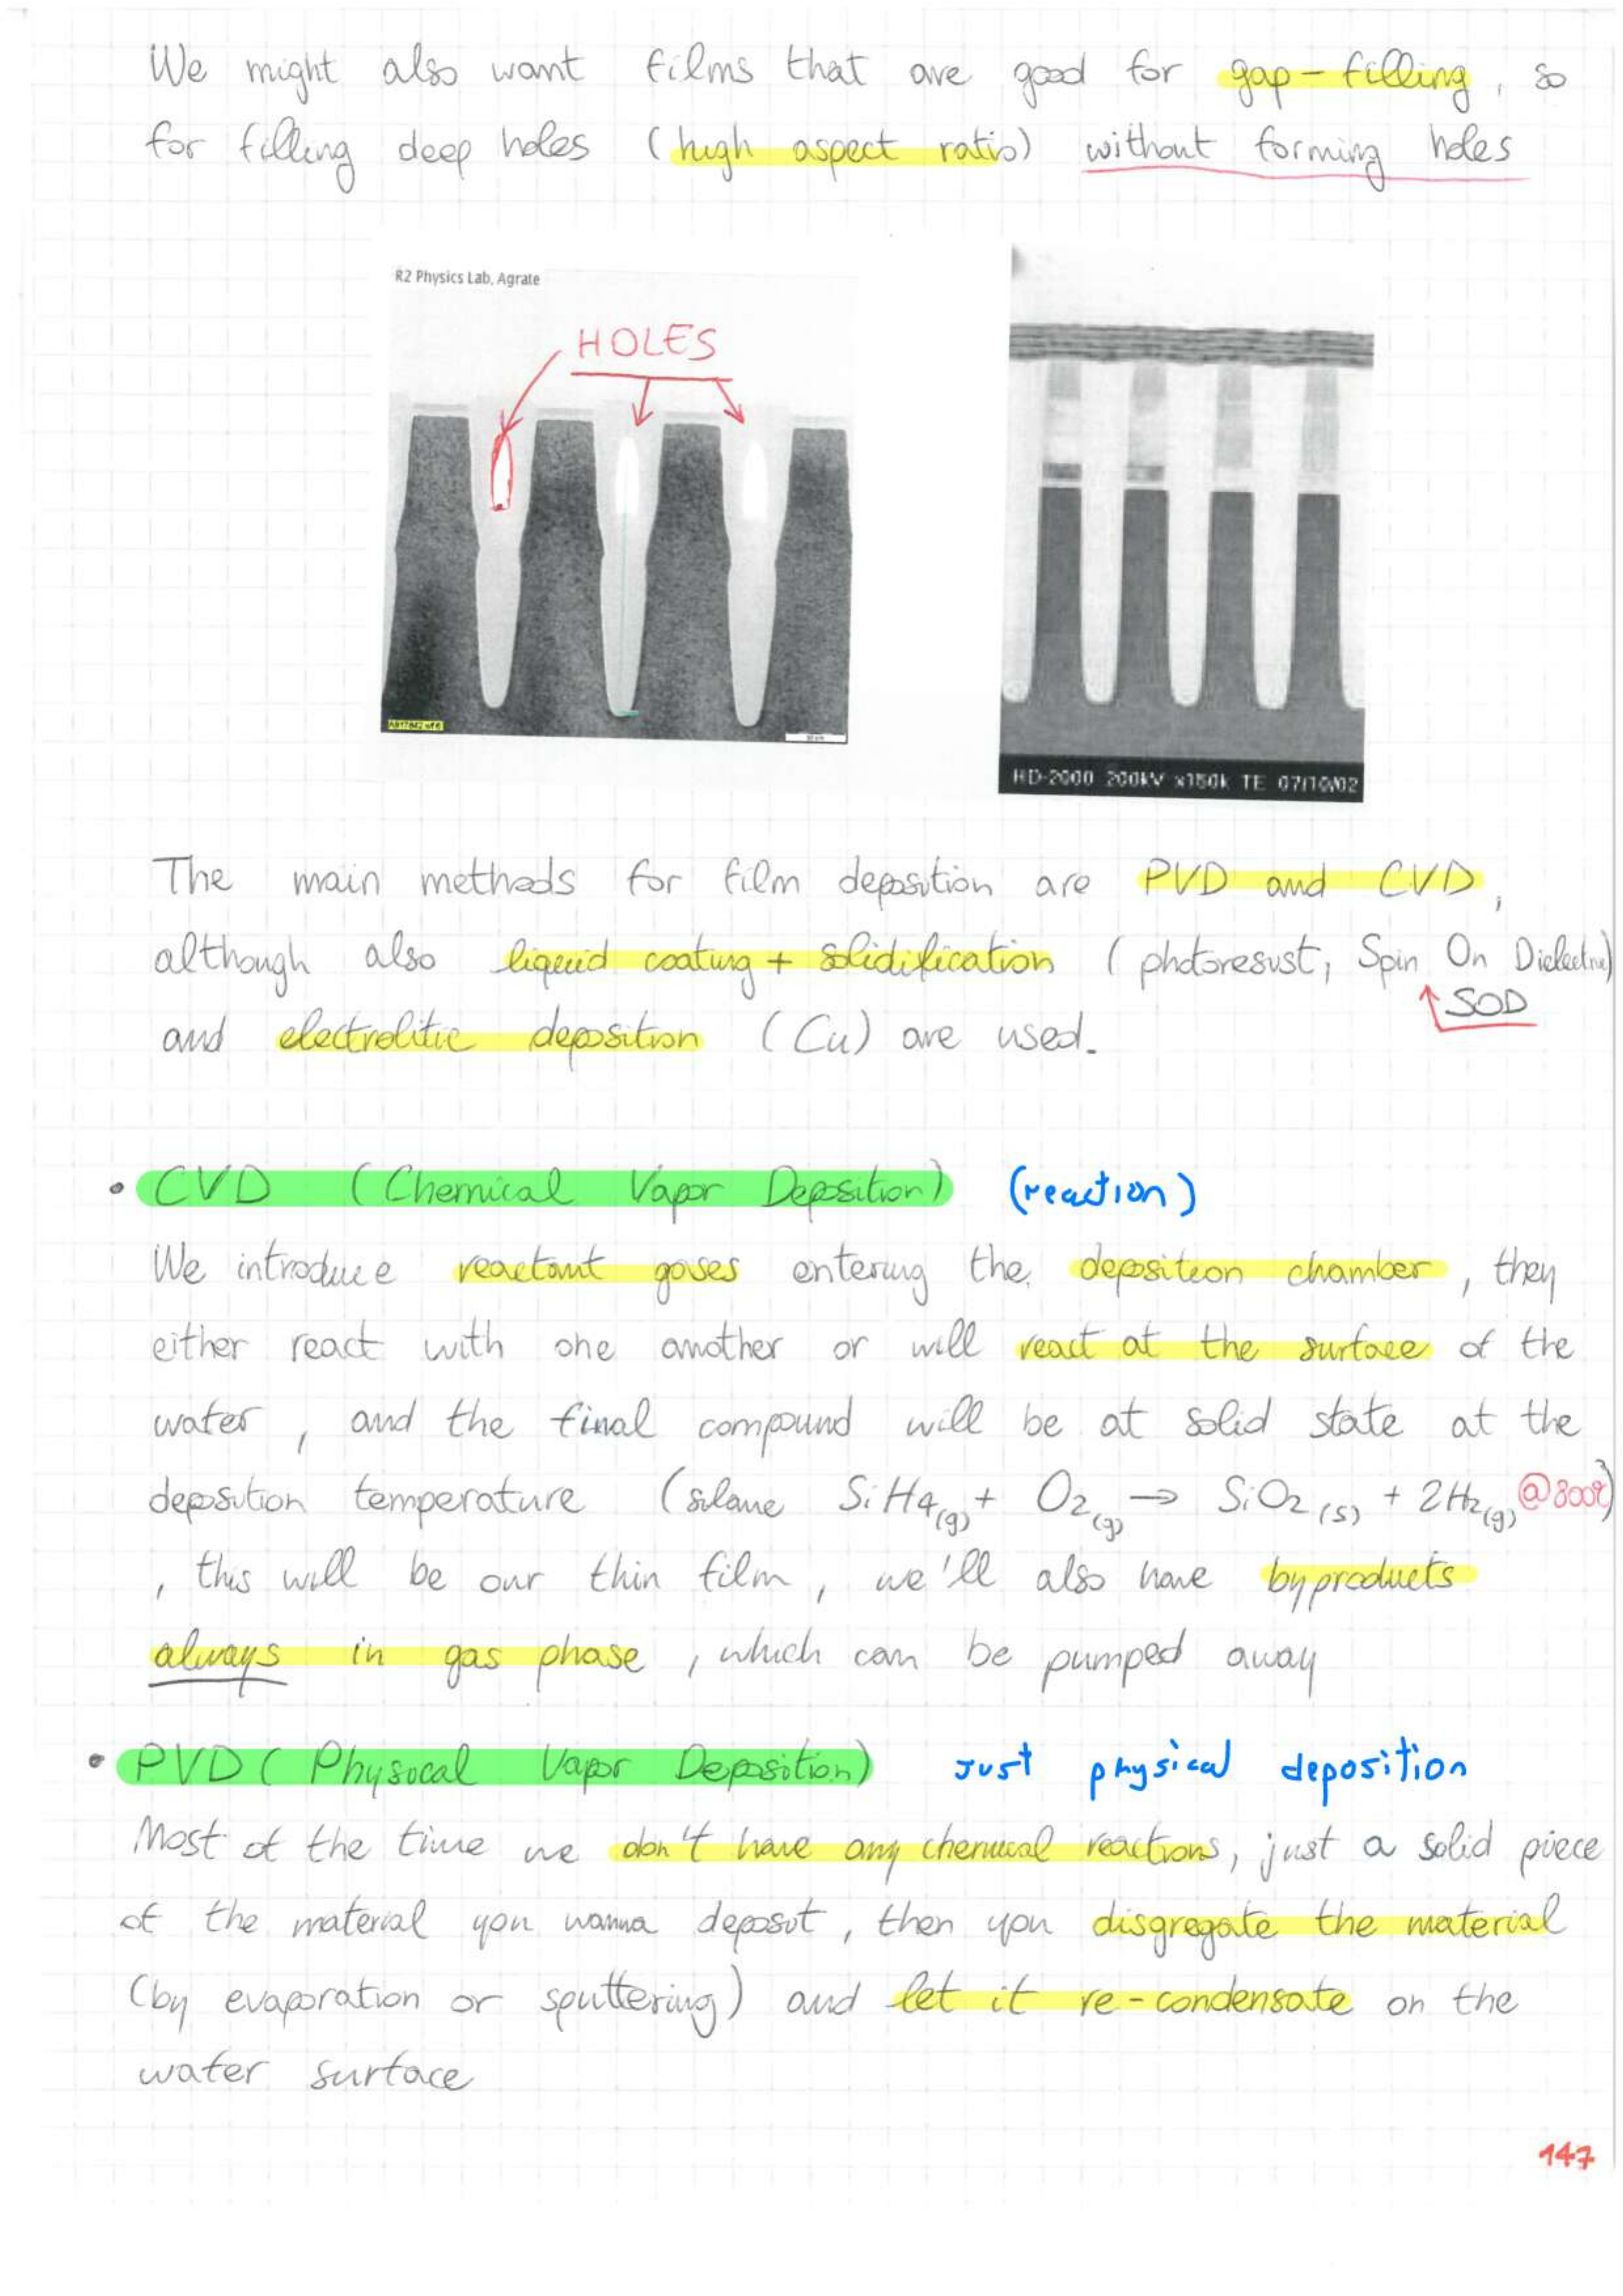 We might also want films that are good for gap-filling, so
for filling deep holes (high aspect ratio) without forming holes
R2 Physics Lab, Agrate
HOLES
HD-2000 200kV x150k TE 07/10/02
The main methods for film deposition are PVD and CVD,
although also liquid coating + solidification (photoresist, Spin On Dielectric)
SOD
and electrolitic deposition (Cu) are used.
• CVD (Chemical Vapor Deposition) (reaction)
We introduce reactant gases entering the deposition chamber, they
either react with one another or will react at the surface of the
wafer, and the final compound will be at solid state at the
deposition temperature (silane SiH4(g) + O2(g) → SiO2(s) + 2H2(g) @800°C)
, this will be our thin film, we'll also have byproducts
always in gas phase, which can be pumped away
• PVD (Physical Vapor Deposition) Just physical deposition
Most of the time we don't have any chemical reactions, just a solid piece
of the material you wanna deposit, then you disgregate the material
(by evaporation or sputtering) and let it re-condensate on the
wafer surface
147